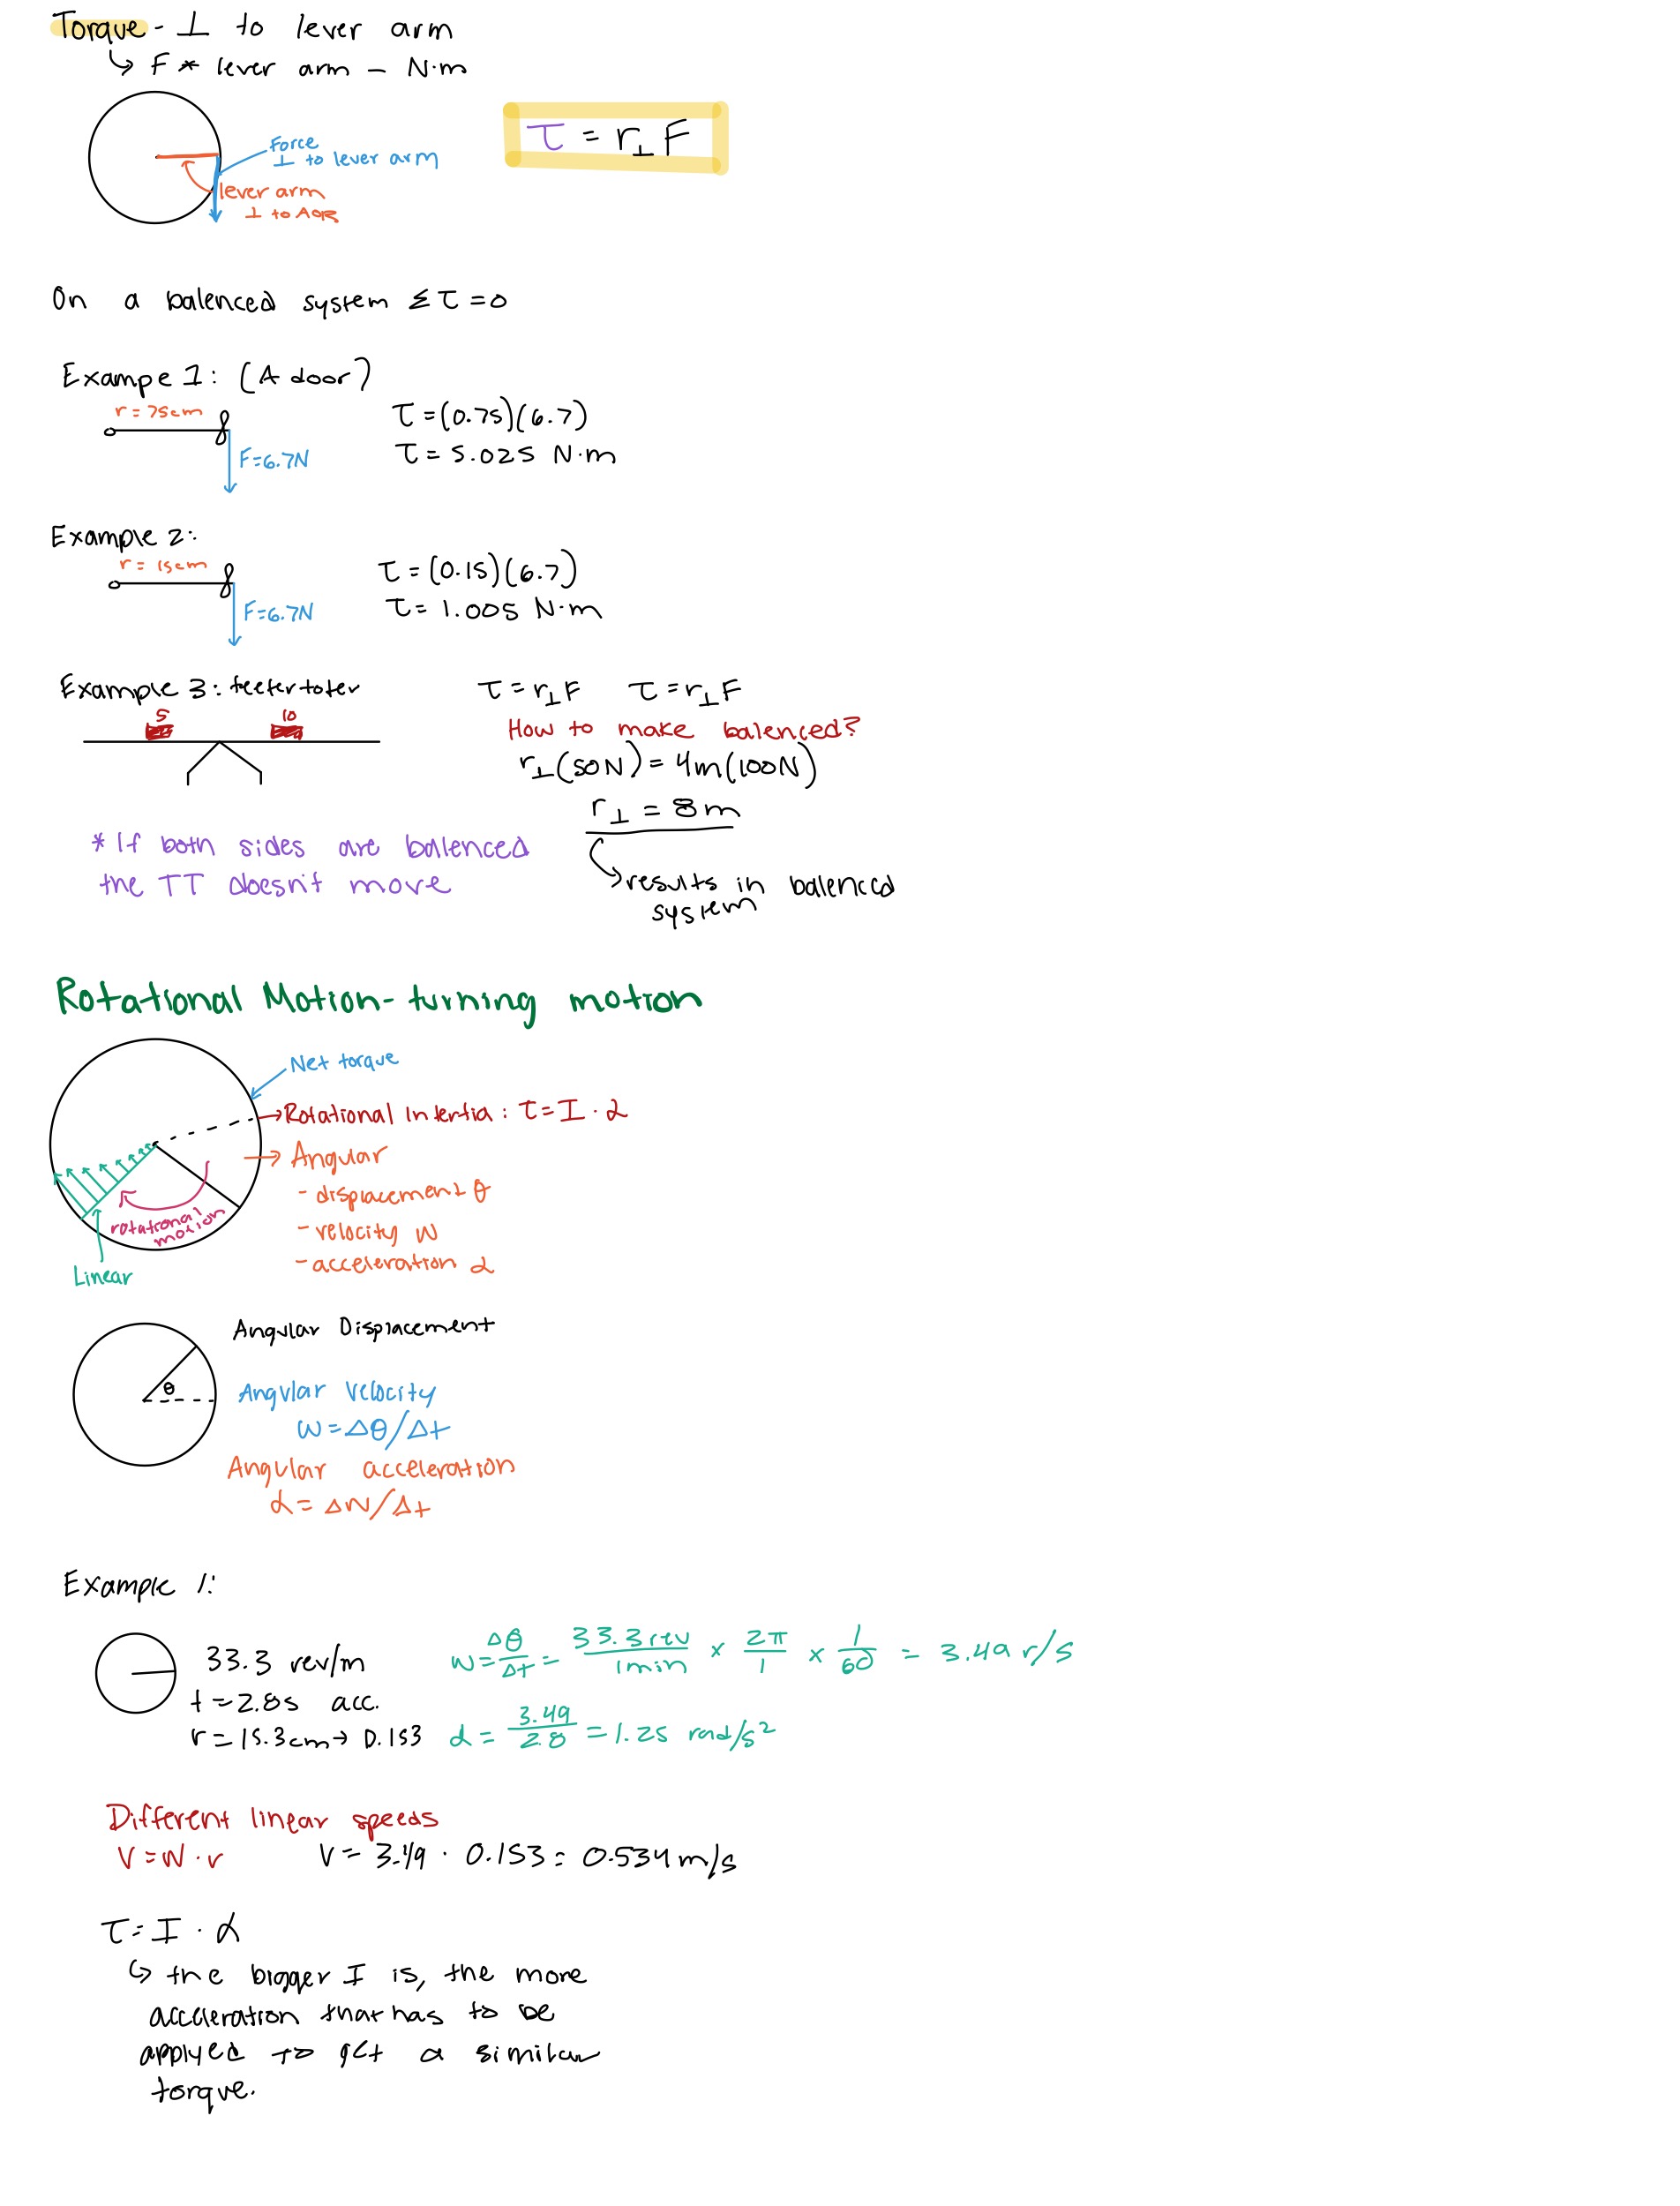 Torque - ⊥ to lever arm
↳ F * lever arm - N·m
Force
⊥ to lever arm
lever arm
⊥ to AOR
τ = r⊥ F
On a balenced system Στ = 0
Exampe 1: (A door)
r = 75cm
F=6.7N
τ = (0.75)(6.7)
τ = 5.025 N·m
Example 2:
r = 15cm
F=6.7N
τ = (0.15)(6.7)
τ = 1.005 N·m
Example 3: teetertoter
5
10
τ = r⊥F τ = r⊥F
How to make balenced?
r⊥(50N) = 4m(100N)
r⊥ = 8m
↳ results in balenced
system
* If both sides are balenced
the TT doesn't move
Rotational Motion - turning motion
Net torque
→ Rotational Intertia : τ = I · α
→ Angular
- displacement θ
- velocity w
- acceleration α
rotational
motion
Linear
θ
Angular Displacement
Angular Velocity
w = Δθ/Δt
Angular acceleration
α = Δw/Δt
Example 1:
33.3 rev/m
t = 2.8s acc.
r = 15.3cm → 0.153
w = Δθ/Δt = 33.3rev/1min × 2π/1 × 1/60 = 3.49 r/s
α = 3.49/2.8 = 1.25 rad/s²
Different linear speeds
V = w · r V = 3.49 · 0.153 = 0.534 m/s
τ = I · α
↳ the bigger I is, the more
acceleration that has to be
applyed to get a similar
torque.